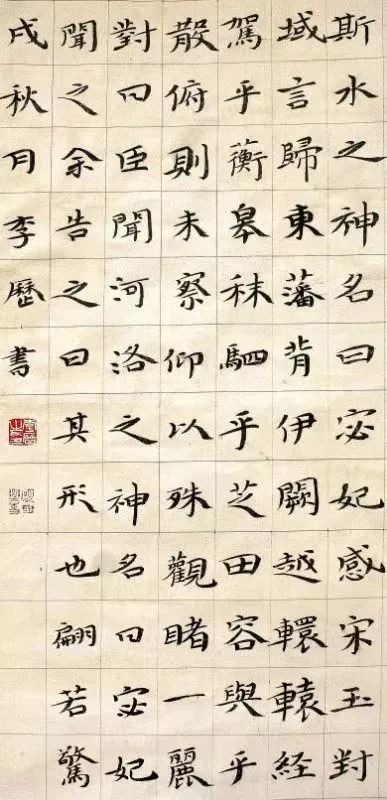 斯水之神名曰宓妃感宋玉對
域言歸東藩背伊闕越轘轅經
駕乎蘅皋秣駟乎芝田容與乎
散俯則未察仰以殊觀睹一麗
對曰臣聞河洛之神名曰宓妃
聞之余告之曰其形也翩若驚
戌秋月李歷書